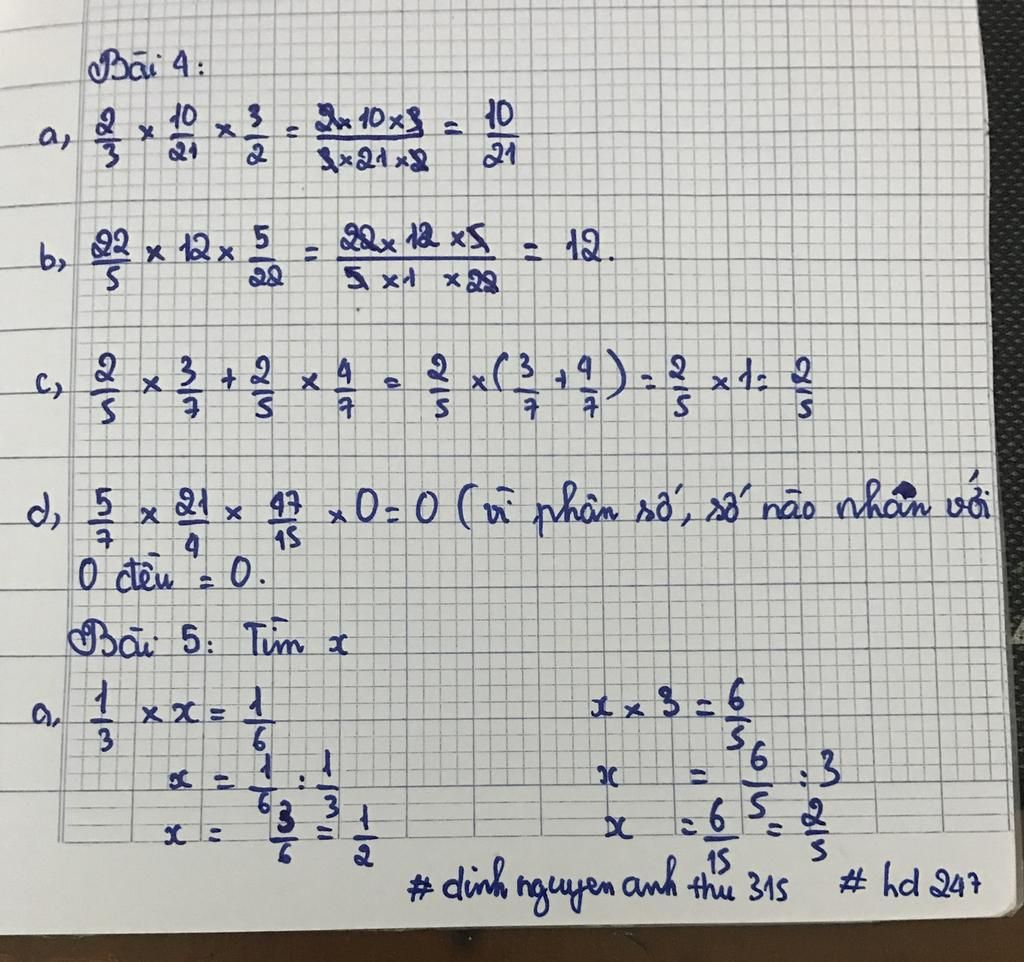 Bài 4:
a, 2/3 × 10/21 × 3/2 = (2×10×3)/(3×21×2) = 10/21
b, 22/5 × 12 × 5/22 = (22×12×5)/(5×1×22) = 12.
c, 2/5 × 3/7 + 2/5 × 4/7 = 2/5 × (3/7 + 4/7) = 2/5 × 1 = 2/5
d, 5/7 × 21/4 × 47/15 × 0 = 0 (vì phân số, số nào nhân với
0 đều = 0.
Bài 5: Tìm x
a, 1/3 × x = 1/6
x = 1/6 : 1/3
x = 3/6 = 1/2
x × 3 = 6/5
x = 6/5 : 3
x = 6/15 = 2/5
# dinh nguyen anh thu 315 # hd 247